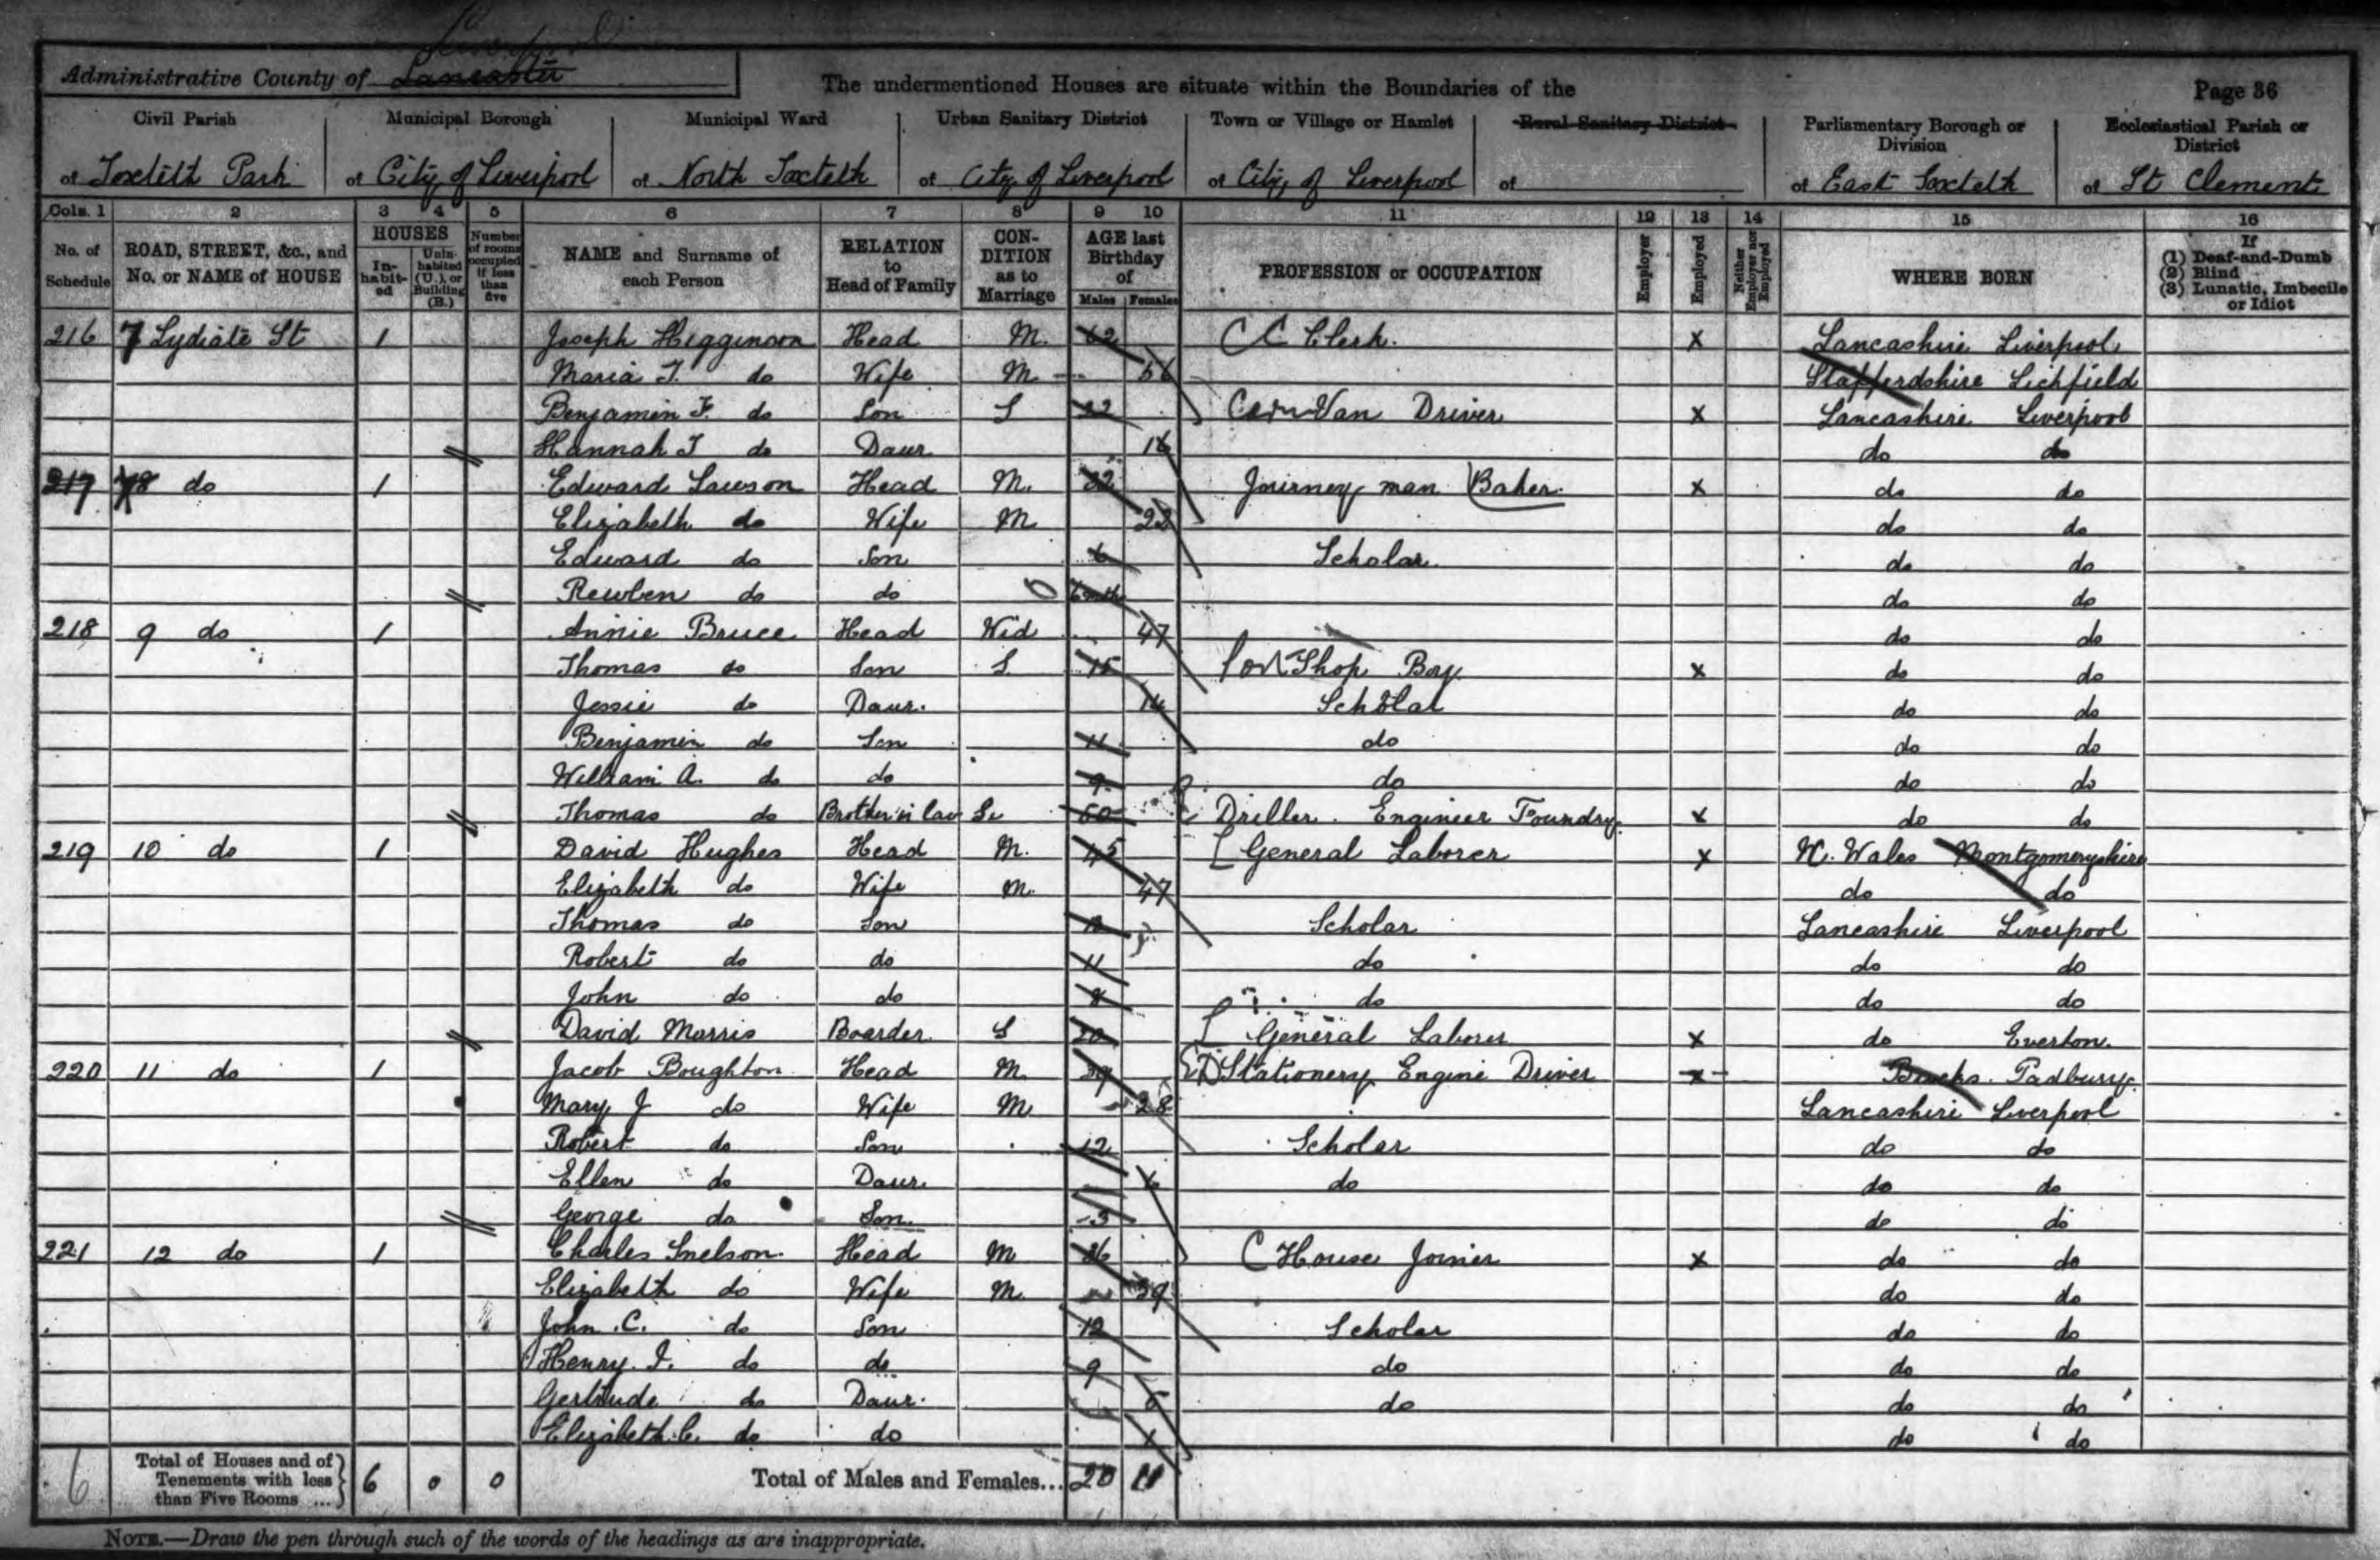 Liverpool
Administrative County of Lancaster
The undermentioned Houses are situate within the Boundaries of the
Page 36
Civil Parish of Toxteth Park
Municipal Borough of City of Liverpool
Municipal Ward of North Toxteth
Urban Sanitary District of City of Liverpool
Town or Village or Hamlet of City of Liverpool
Rural Sanitary District of
Parliamentary Borough or Division of East Toxteth
Ecclesiastical Parish or District of St Clement
Cols. 1 2 3 4 5 6 7 8 9 10 11 12 13 14 15 16
No. of Schedule
ROAD, STREET, &c., and No. or NAME of HOUSE
HOUSES
Inhabited
Uninhabited (U.), or Building (B.)
Number of rooms occupied if less than five
NAME and Surname of each Person
RELATION to Head of Family
CONDITION as to Marriage
AGE last Birthday of
Males Females
PROFESSION or OCCUPATION
Employer
Employed
Neither Employer nor Employed
WHERE BORN
If (1) Deaf-and-Dumb (2) Blind (3) Lunatic, Imbecile or Idiot
216 7 Lydiate St 1 Joseph Higginson Head M. 62 Clerk. x Lancashire Liverpool
Maria T. do Wife M 56 Staffordshire Lichfield
Benjamin F. do Son S 22 Van Driver x Lancashire Liverpool
Hannah T do Daur 16 do do
217 8 do 1 Edward Lawson Head M. 32 Journey man Baker. x do do
Elizabeth do Wife M do do
Edward do Son 6 Scholar do do
Rewben do do do do
218 9 do 1 Annie Bruce Head Wid 47 do do
Thomas do Son S. 15 Shop Boy x do do
Jessie do Daur. 14 Scholar do do
Benjamin do Son 11 do do do
William A. do do 9 do do do
Thomas do Brother in law 60 Driller. Engineer Foundry x do do
219 10 do 1 David Hughes Head M. 45 General Laborer x N. Wales Montgomeryshire
Elizabeth do Wife M. 47 do do
Thomas do Son Scholar Lancashire Liverpool
Robert do do 11 do do do
John do do 8 do do do
David Morris Boarder S 20 General Laborer x do Everton.
220 11 do 1 Jacob Boughton Head M. 39 Stationery Engine Driver x Bucks. Padbury.
Mary J do Wife M 28 Lancashire Liverpool
Robert do Son 12 Scholar do do
Ellen do Daur. 6 do do do
George do Son. 3 do do
221 12 do 1 Charles Snelson Head M 36 House Joiner x do do
Elizabeth do Wife M 39 do do
John C. do Son 12 Scholar do do
Henry J. do do 9 do do do
Gertrude do Daur. do do do
Elizabeth C. do do 1 do do
6 Total of Houses and of Tenements with less than Five Rooms ... 6 0 0 Total of Males and Females... 20 11
NOTE.—Draw the pen through such of the words of the headings as are inappropriate.